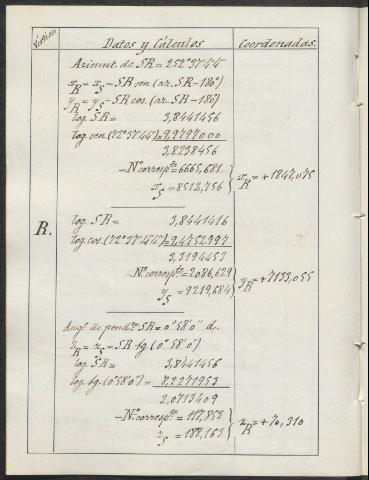 Vértices
Datos y Cálculos
Coordenadas.
Azimut de SR = 252°37'44"
x_R = x_S - SR sen (az. SR - 180°)
y_R = y_S - SR cos. (az. SR - 180°)
log. SR = 3,8441456
log. sen (72°37'44") = 9,9797000
3,8238456
- Nº corresp.te = 6665,681
x_S = 8512,756
x_R = +1847,075
R.
log. SR = 3,8441416
log. cos. (72°37'44") = 9,4752997
3,3194453
- Nº corresp.te = 2086,629
y_S = 9219,684
y_R = +7133,055
Ang.o de pend.te SR = 0°58'0" d.
z_R = z_S - SR tg. (0°58'0")
log. SR = 3,8441456
log. tg. (0°58'0") = 8,2271953
2,0713409
- Nº corresp.te = 117,853
z_S = 188,163
z_R = +70,310